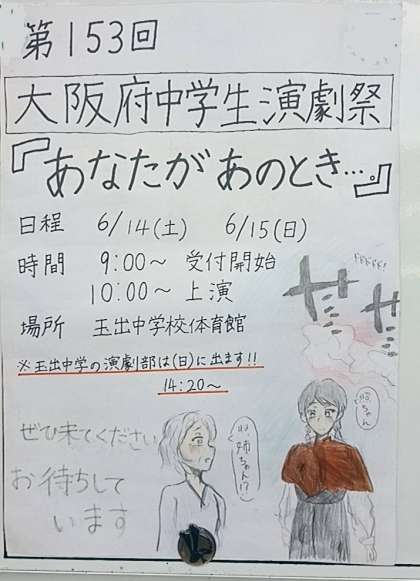 第153回
大阪府中学生演劇祭
『あなたが あのとき…。』
日程 6/14(土) 6/15(日)
時間 9:00～ 受付開始
10:00～ 上演
場所 玉出中学校体育館
※玉出中学の演劇部は(日)に出ます!!
14:20～
ぜひ来てください
お待ちして
います
姉ちゃん!?